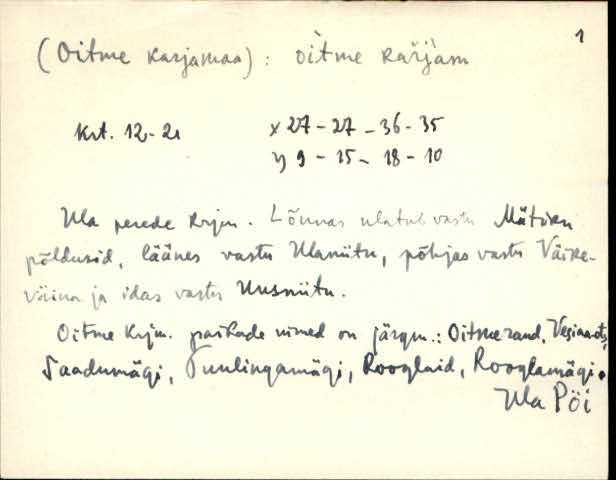 1
(Oitme karjamaa) : òitme kar̆jàm
krt. 12-21 x 27 - 27 - 36 - 35
y 9 - 15 - 18 - 10
Ula perede krjm. Lõunas ulatub vastu Mätiku
põldusid, läänes vastu Ulaniitu, põhjas vastu Väike-
väina ja idas vastu Uusniitu.
Oitme krjm. paikade nimed on järgm.: Oitme rand, Vesiaaots,
Saadumägi, Tuulingamägi, Rooglaid, Rooglamägi.
Ula Pöi